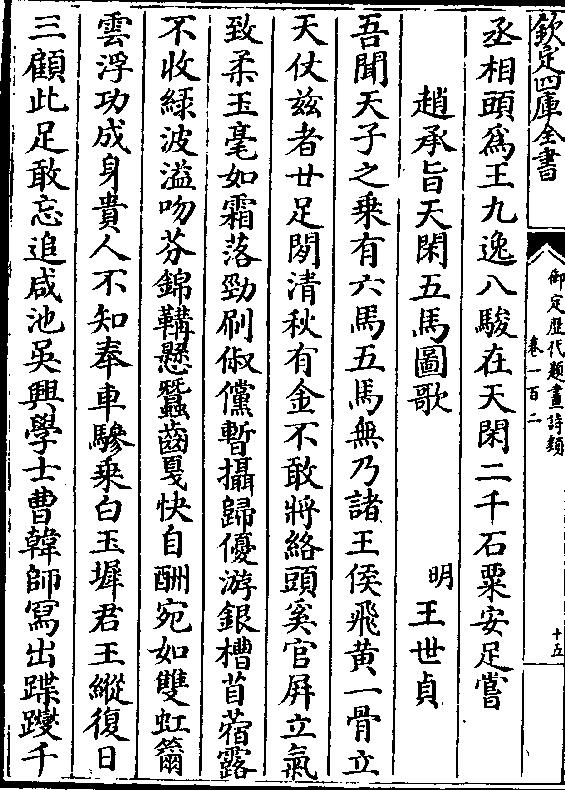 欽定四庫全書
御定歷代題畫詩類
卷一百二
十五
丞相頭為王九逸八駿在天閑二千石粟安足嘗
趙承旨天閑五馬圖歌 明 王世貞
吾聞天子之乘有六馬五馬無乃諸王侯飛黃一骨立
天仗兹者廿足閉清秋有金不敢將絡頭奚官屏立氣
致柔玉毫如霜落勁刷俶儻暫攝歸優游銀槽苜蓿露
不收綠波溢吻芬錦韝懸蠶齒戛快自酬宛如雙虹籋
雲浮功成身貴人不知奉車驂乘白玉墀君王縱復日
三顧此足敢忘追咸池吳興學士曹韓師寫出蹀躞千